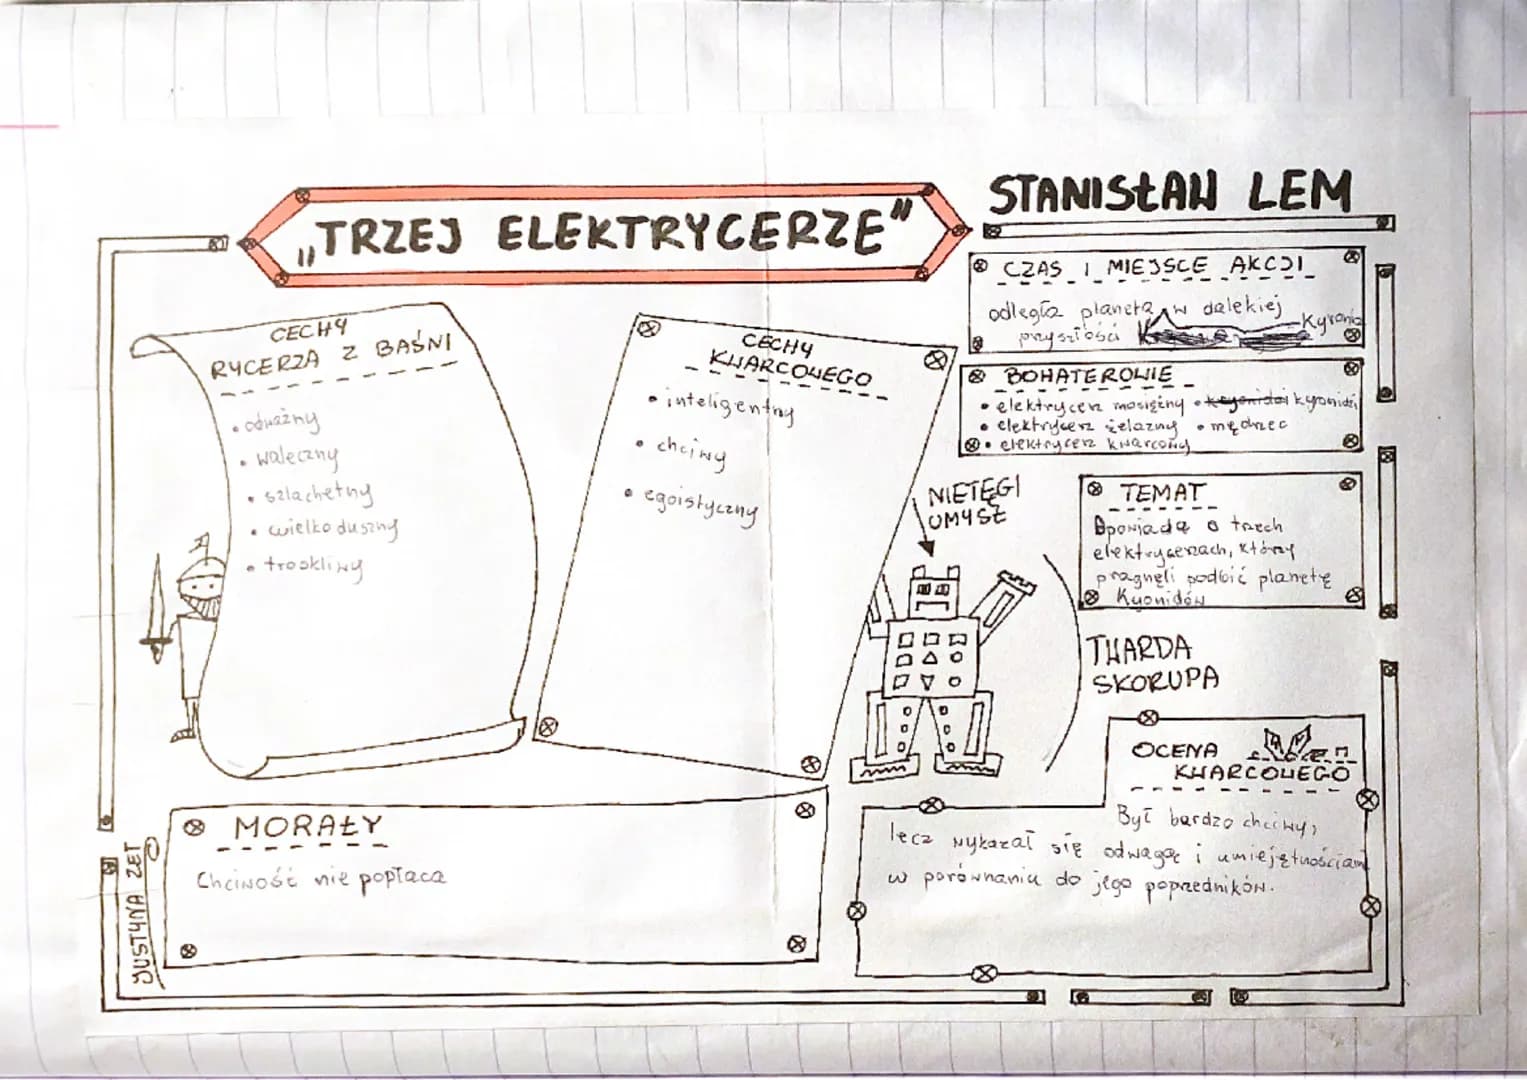 „TRZEJ ELEKTRYCERZE"
STANISŁAW LEM
CZAS I MIEJSCE AKCJI
odległa planeta w dalekiej
przyszłości Kyronia
BOHATEROWIE
• elektrycerz mosiężny • kyronidzi
• elektrycerz żelazny • mędrzec
• elektrycerz kwarcowy
CECHY
RYCERZA Z BAŚNI
• odważny
• waleczny
• szlachetny
• wielkoduszny
• troskliwy
CECHY
KWARCOWEGO
• inteligentny
• chciwy
• egoistyczny
NIETĘGI
UMYSŁ
TEMAT
Opowiada o trzech
elektrycerzach, którzy
pragnęli podbić planetę
Kyonidów
TWARDA
SKORUPA
OCENA
KWARCOWEGO
Był bardzo chciwy,
lecz wykazał się odwagą i umiejętnościami
w porównaniu do jego poprzedników.
MORAŁY
Chciwość nie popłaca
JUSTYNA ZET